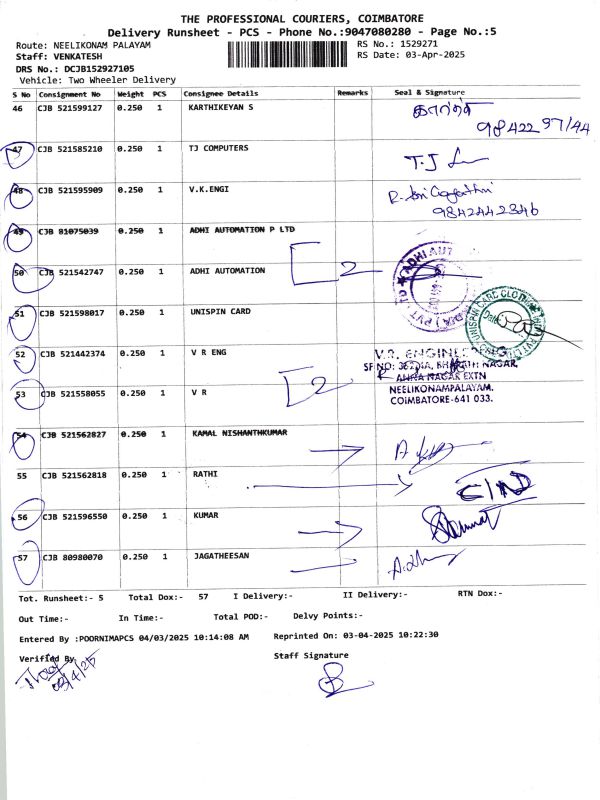 THE PROFESSIONAL COURIERS, COIMBATORE
Delivery Runsheet - PCS - Phone No.:9047080280 - Page No.:5
Route: NEELIKONAM PALAYAM
RS No.: 1529271
Staff: VENKATESH
RS Date: 03-Apr-2025
DRS No.: DCJB152927105
Vehicle: Two Wheeler Delivery
S No Consignment No Weight PCS Consignee Details Remarks Seal & Signature
46 CJB 521599127 0.250 1 KARTHIKEYAN S
98422 97144
47 CJB 521585210 0.250 1 TJ COMPUTERS T.J
48 CJB 521595909 0.250 1 V.K.ENGI
9842442346
49 CJB 81075039 0.250 1 ADHI AUTOMATION P LTD
50 CJB 521542747 0.250 1 ADHI AUTOMATION 2
51 CJB 521598017 0.250 1 UNISPIN CARD
52 CJB 521442374 0.250 1 V R ENG
V.R. ENGINEERING
BHARATHI NAGAR,
ANNA NAGAR EXTN
NEELIKONAMPALAYAM,
COIMBATORE-641 033.
53 CJB 521558055 0.250 1 V R 2
54 CJB 521562827 0.250 1 KAMAL NISHANTHKUMAR
55 CJB 521562818 0.250 1 RATHI
56 CJB 521596550 0.250 1 KUMAR
57 CJB 80980070 0.250 1 JAGATHEESAN
Tot. Runsheet:- 5 Total Dox:- 57 I Delivery:- II Delivery:- RTN Dox:-
Out Time:- In Time:- Total POD:- Delvy Points:-
Entered By :POORNIMAPCS 04/03/2025 10:14:08 AM Reprinted On: 03-04-2025 10:22:30
Verified By Staff Signature